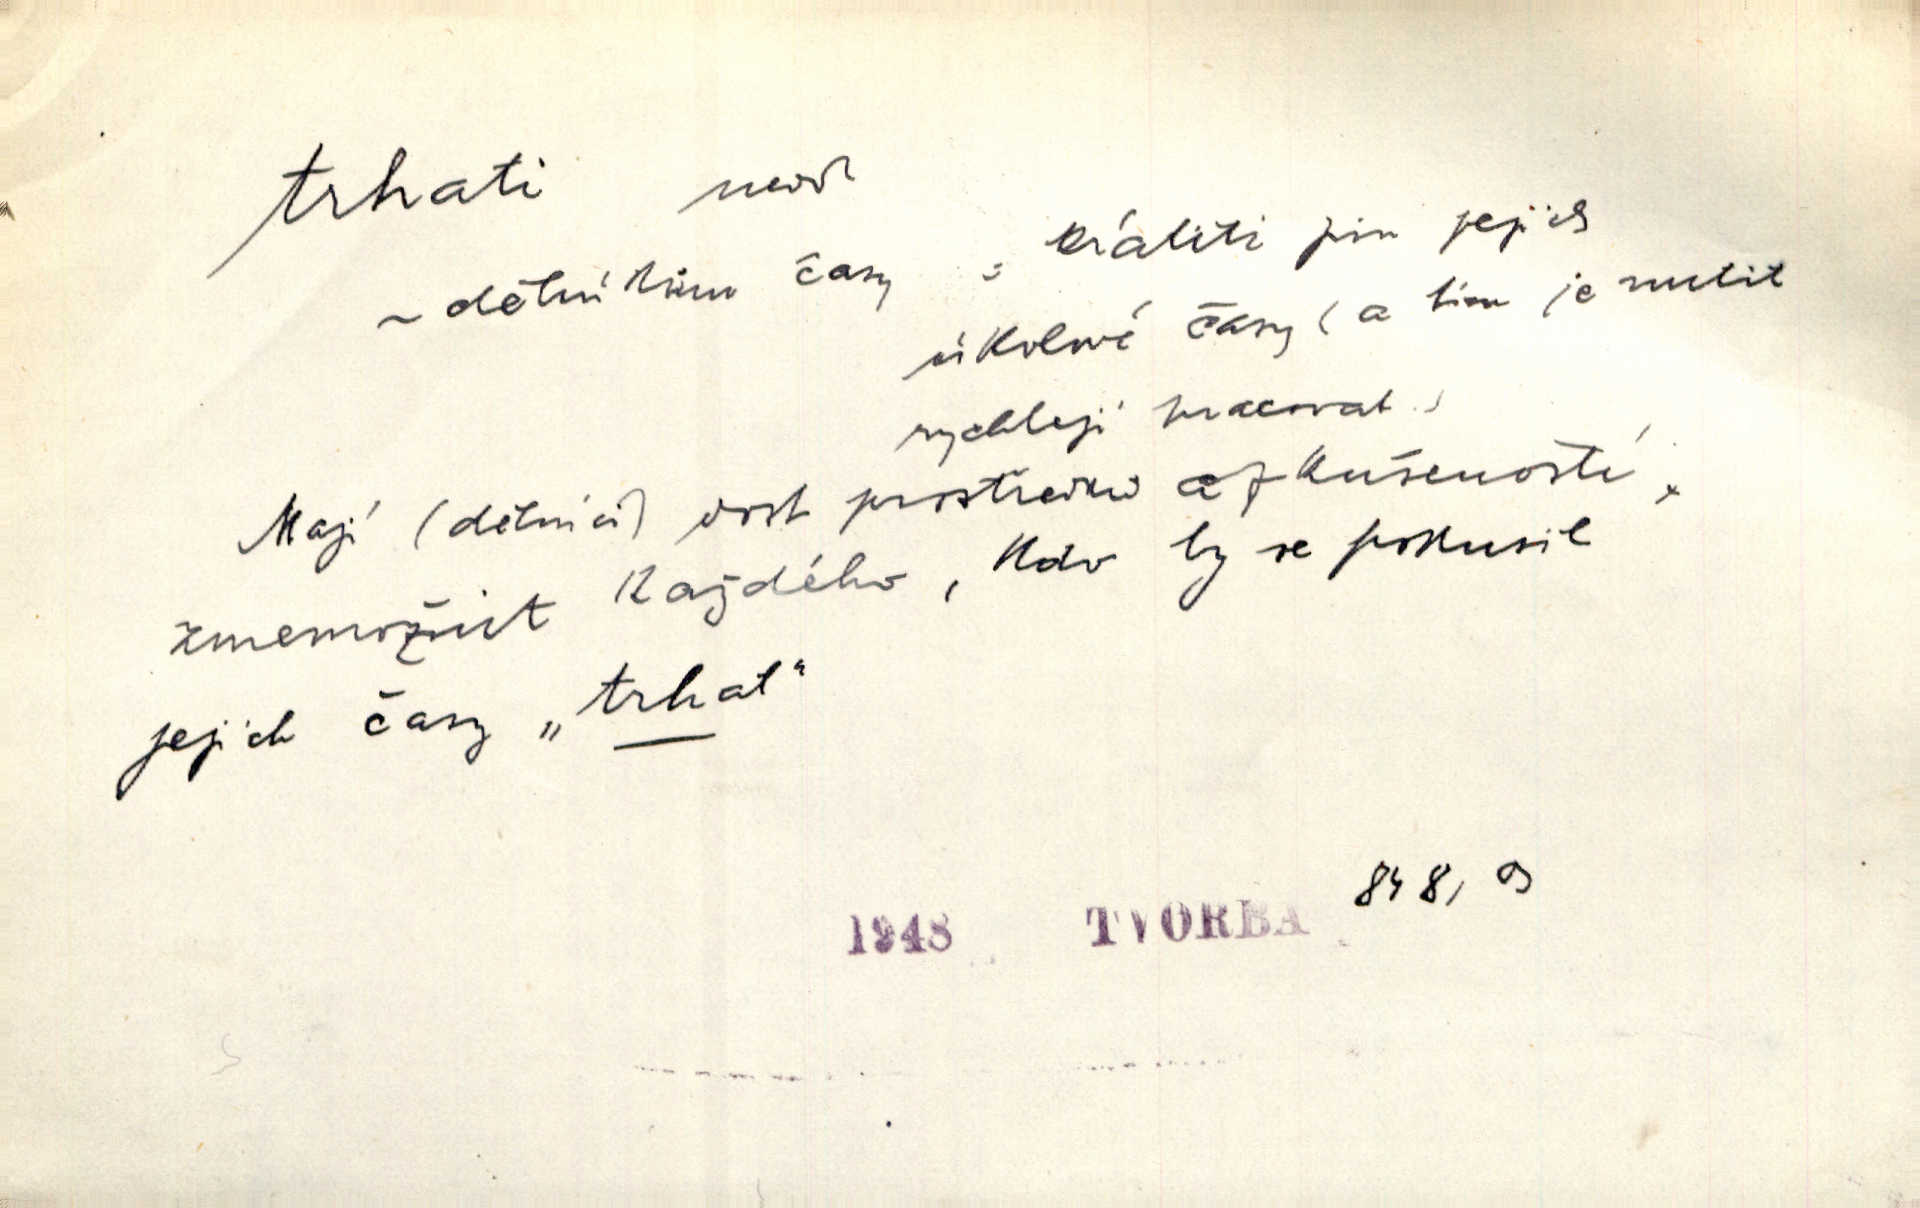 trhati ned.
~ dělníkům časy = krátiti jim jejich
úkolové časy (a tím je nutit
rychleji pracovat)
Mají (dělníci) dost prostředků a zkušeností,
znemožnit každého, kdo by se pokusil
jejich časy „trhat“
1948 TVORBA 848, 9